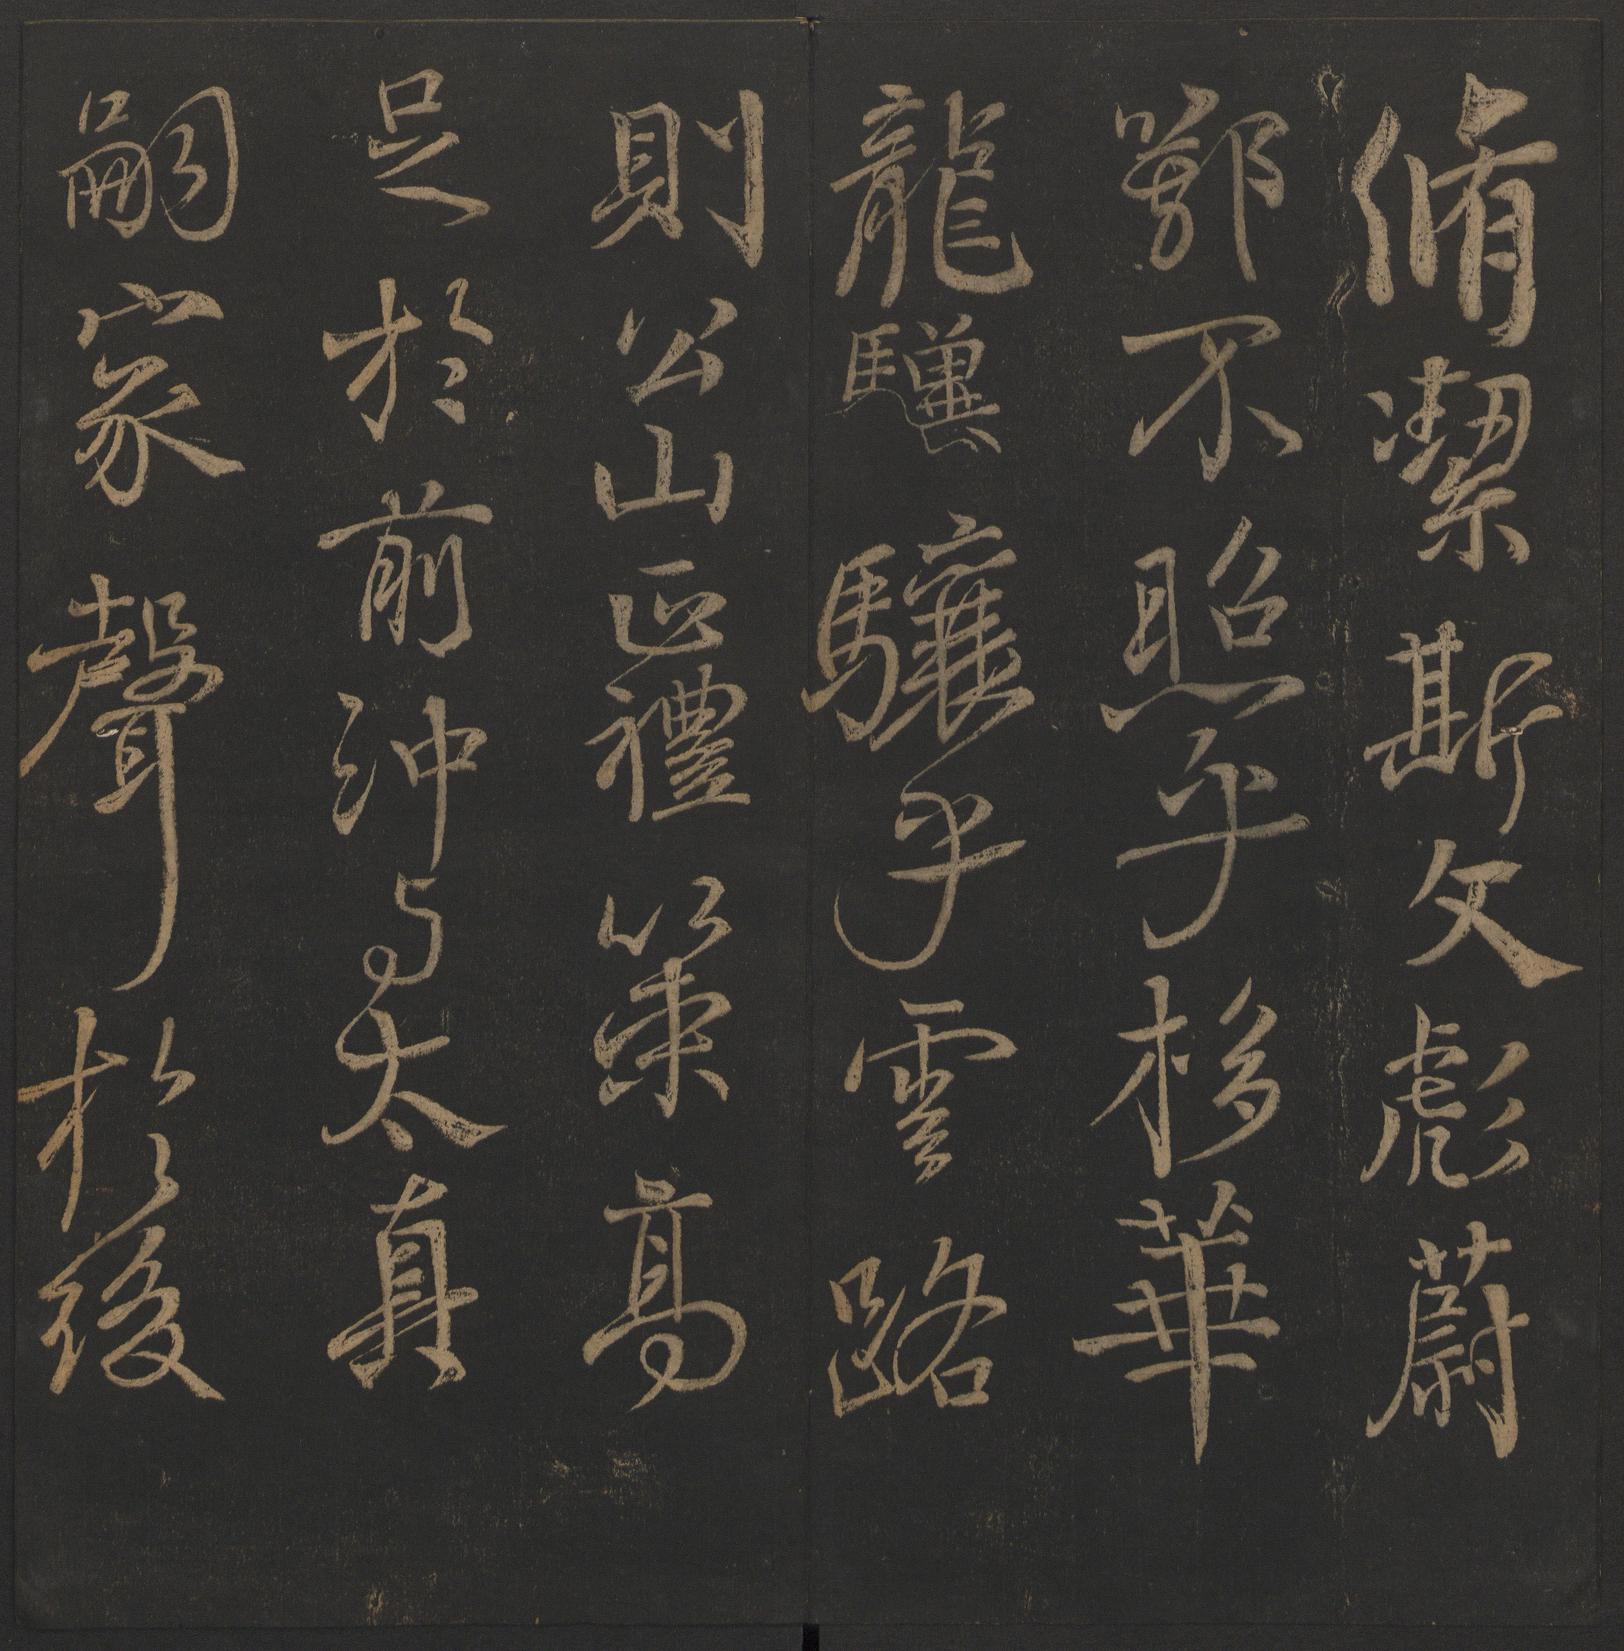 脩潔斯文彪蔚
鄂不照乎栘華
龍驥驤乎雲路
則公山正禮策高
足於前沖与太真
嗣家聲於後